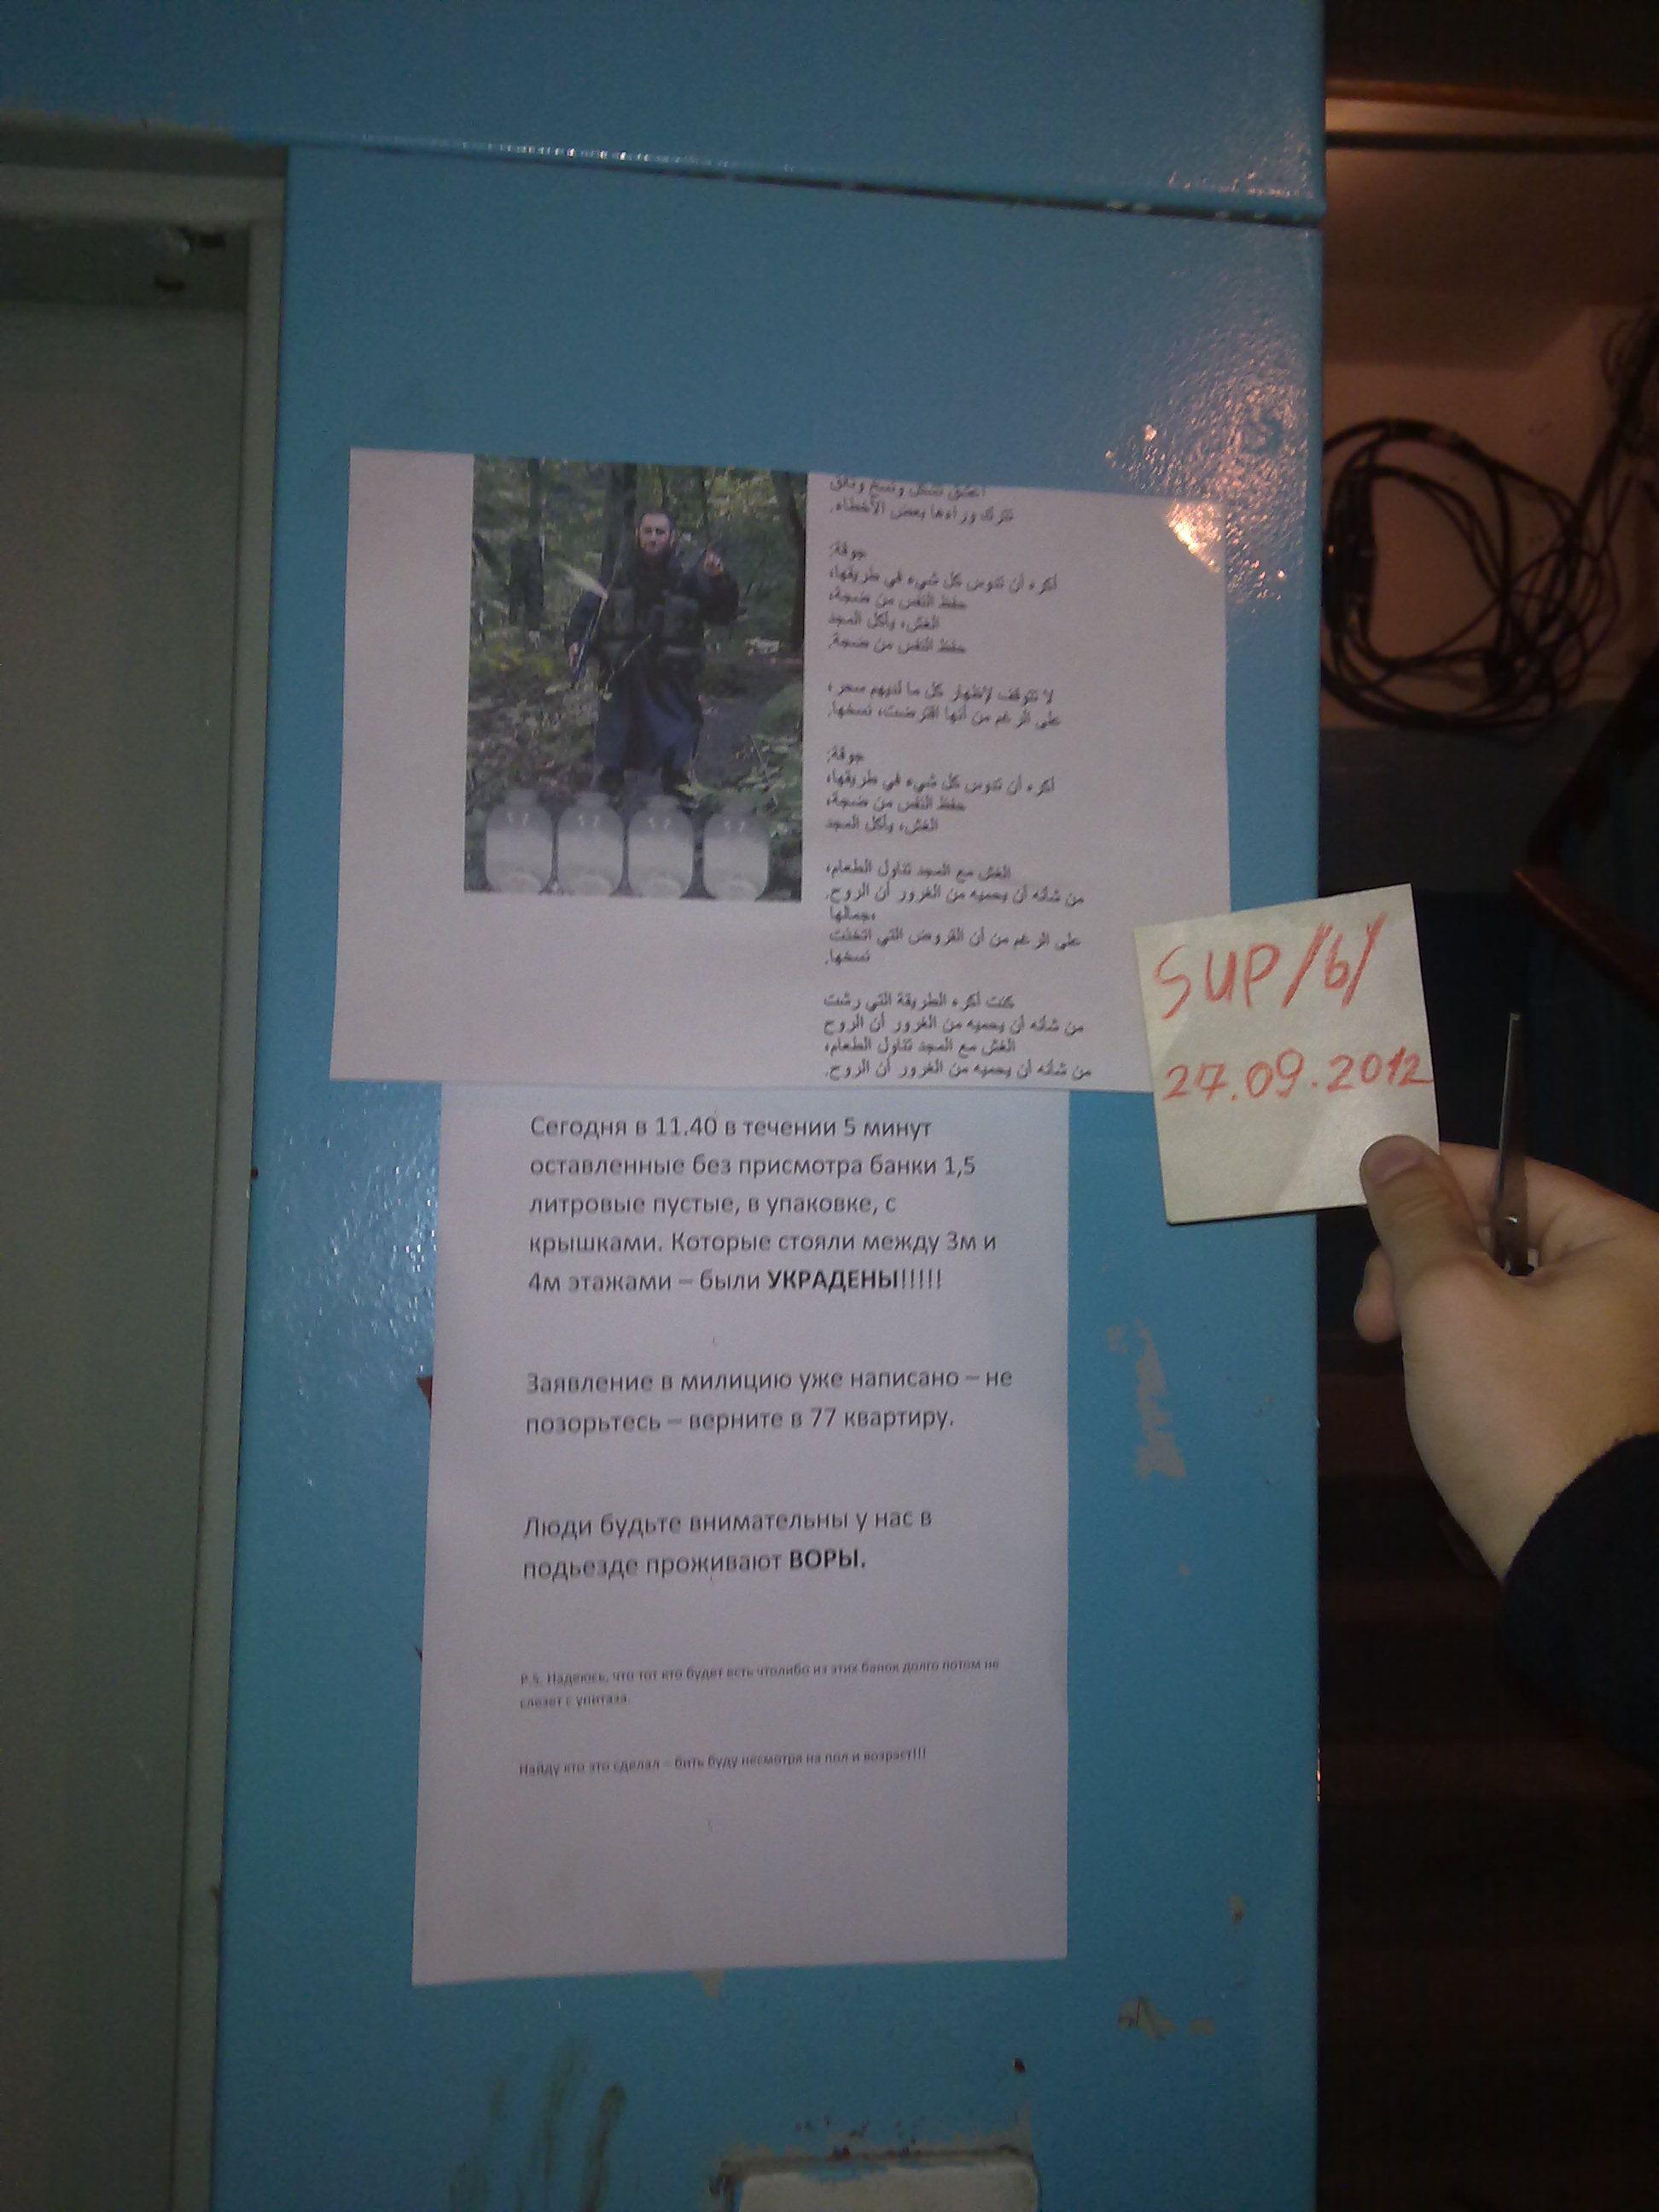 تترك وراءها بعض الأخطاء.
جوقة:
أكره أن تدوس كل شيء في طريقها،
حفظ النفس من ضجة،
الغش، يأكل المجد
حفظ النفس من ضجة.
لا تتوقف لإظهار كل ما لديهم سحر،
على الرغم من أنها اقترضت، نسخها.
جوقة:
أكره أن تدوس كل شيء في طريقها،
حفظ النفس من ضجة،
الغش، يأكل المجد
الغش مع المجد تناول الطعام،
من شأنه أن يحميه من الغرور أن الروح.
جمالها،
على الرغم من أن القروض التي اتخذت
نسخها.
كنت أكره الطريقة التي رشت
من شأنه أن يحميه من الغرور أن الروح
الغش مع المجد تناول الطعام،
من شأنه أن يحميه من الغرور أن الروح.
SUP /b/
27.09.2012
Сегодня в 11.40 в течении 5 минут
оставленные без присмотра банки 1,5
литровые пустые, в упаковке, с
крышками. Которые стояли между 3м и
4м этажами – были УКРАДЕНЫ!!!!!
Заявление в милицию уже написано – не
позорьтесь – верните в 77 квартиру.
Люди будьте внимательны у нас в
подьезде проживают ВОРЫ.
P.S. Надеюсь, что тот кто будет есть чтолибо из этих банок долго потом не
слезет с унитаза.
Найду кто это сделал – бить буду несмотря на пол и возраст!!!